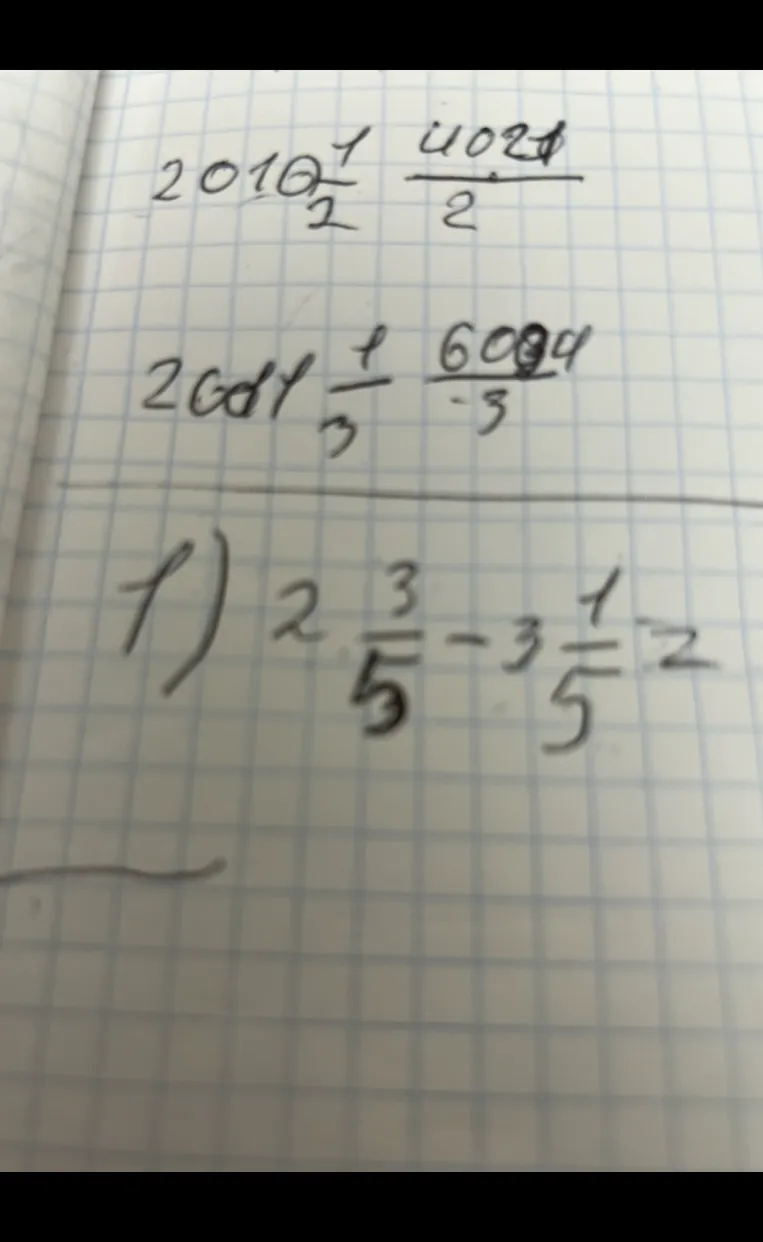 2010 1/2 4021/2
2011 1/3 6034/3
1) 2 3/5 - 3 1/5 =